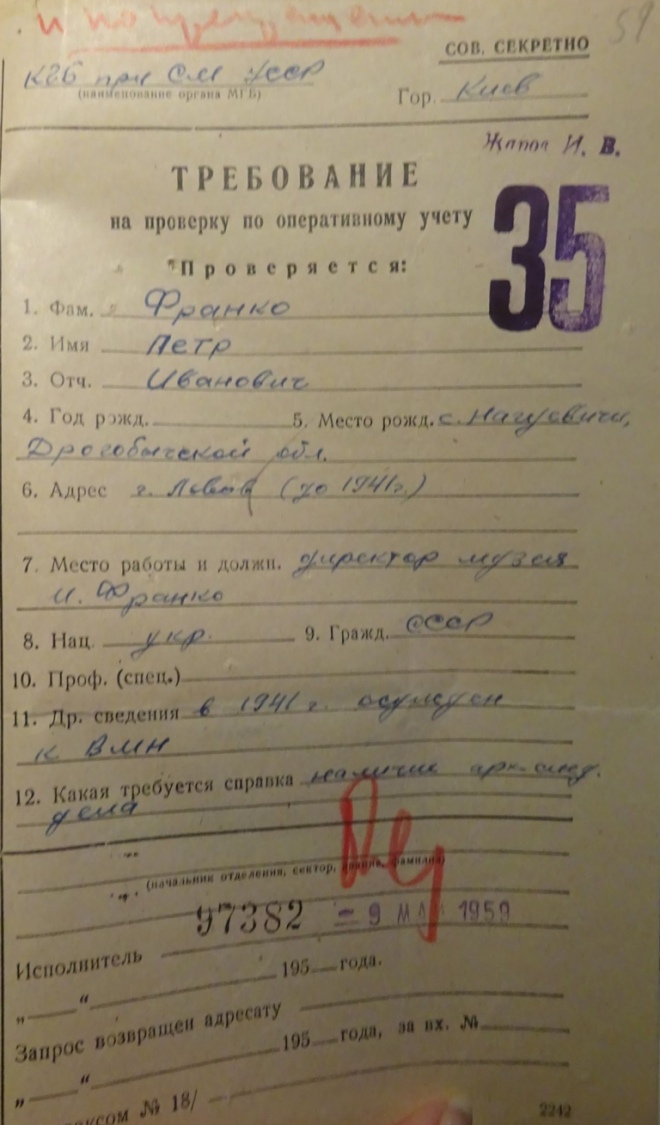 и по
59
СОВ. СЕКРЕТНО
КГБ при СМ УССР
(наименование органа МГБ)
Гор. Киев
И. В.
ТРЕБОВАНИЕ
на проверку по оперативному учету
35
Проверяется:
1. Фам. Франко
2. Имя Петр
3. Отч. Иванович
4. Год рожд. 5. Место рожд. с. Нагуевичи,
Дрогобычской обл.
6. Адрес г. Львов (до 1941г.)
7. Место работы и должн. директор музея
И. Франко
8. Нац. укр. 9. Гражд. СССР
10. Проф. (спец.)
11. Др. сведения в 1941 г. осужден
к ВМН
12. Какая требуется справка наличие арх. след.
дела
(начальник отделения, сектор, звание, фамилия)
97382 – 9 МАЯ 1959
Исполнитель
„ “ 195 года.
Запрос возвращен адресату
„ “ 195 года, за вх. №
ксом № 18/
2242